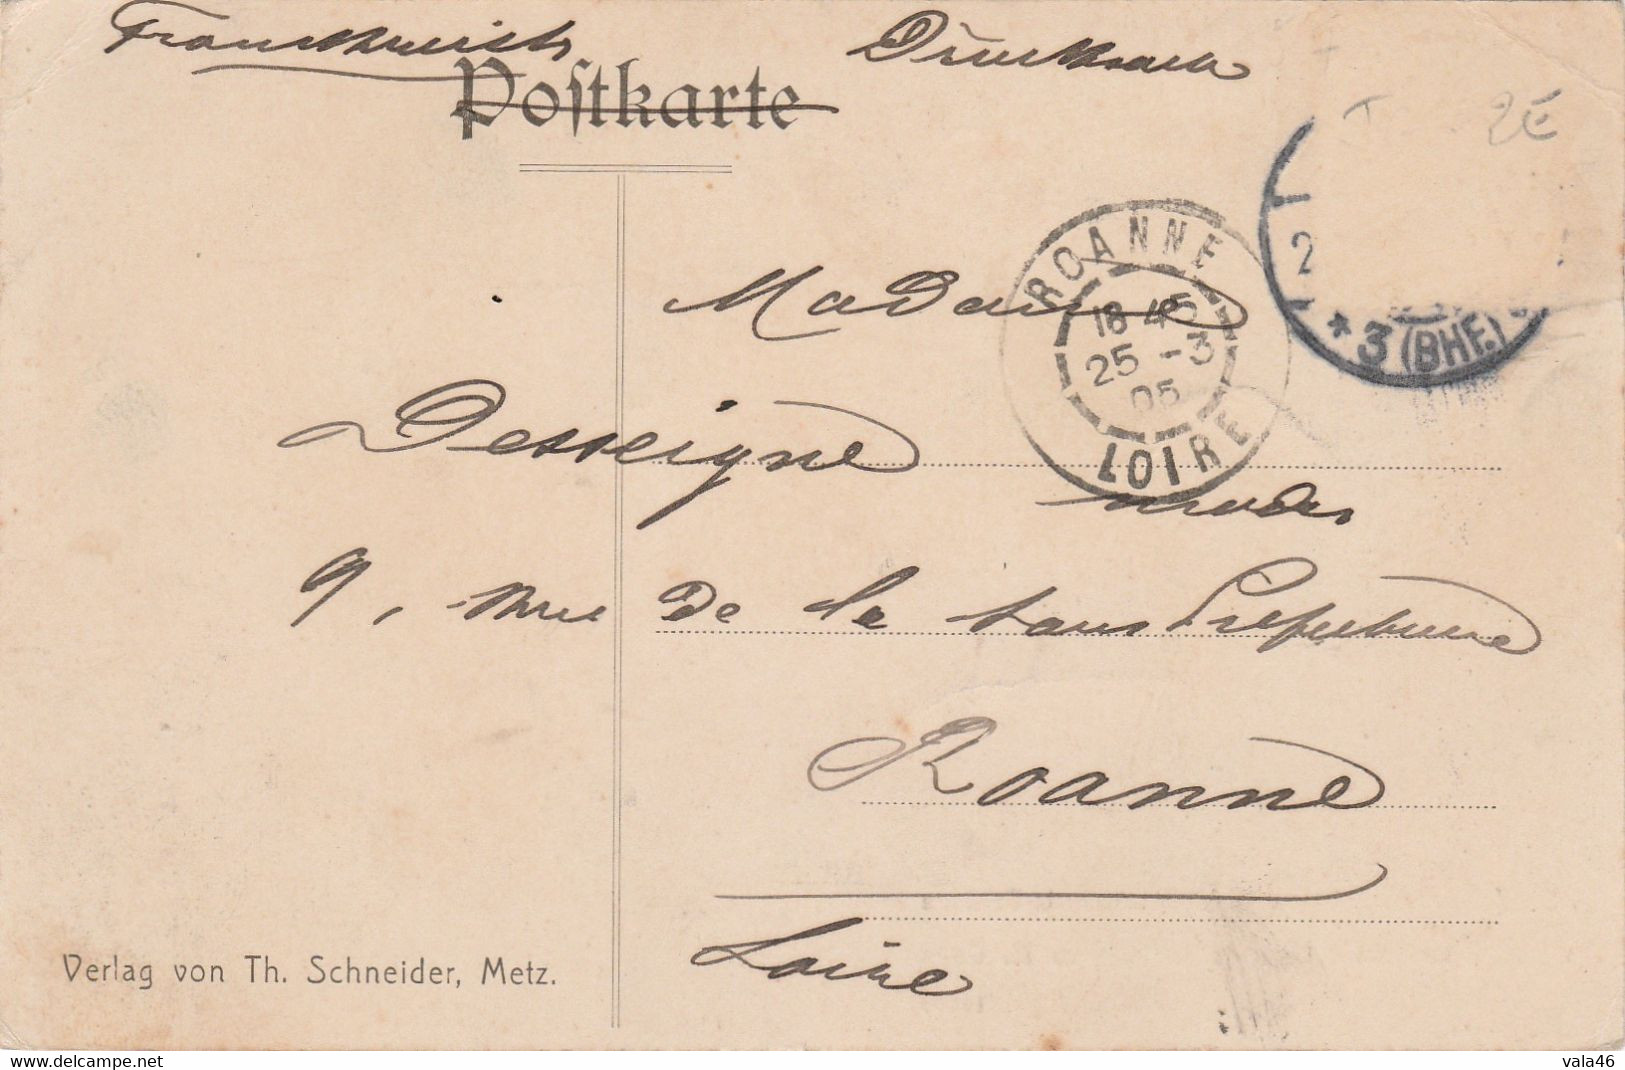 Frankreich Drucksache
Postkarte
T 2E
ROANNE
18 45
25 -3
05
LOIRE
2
* 3 (BHF.)
Madame
Desseigne
modes
9, rue de la sous Préfecture
Roanne
Loire
Verlag von Th. Schneider, Metz.
vala46